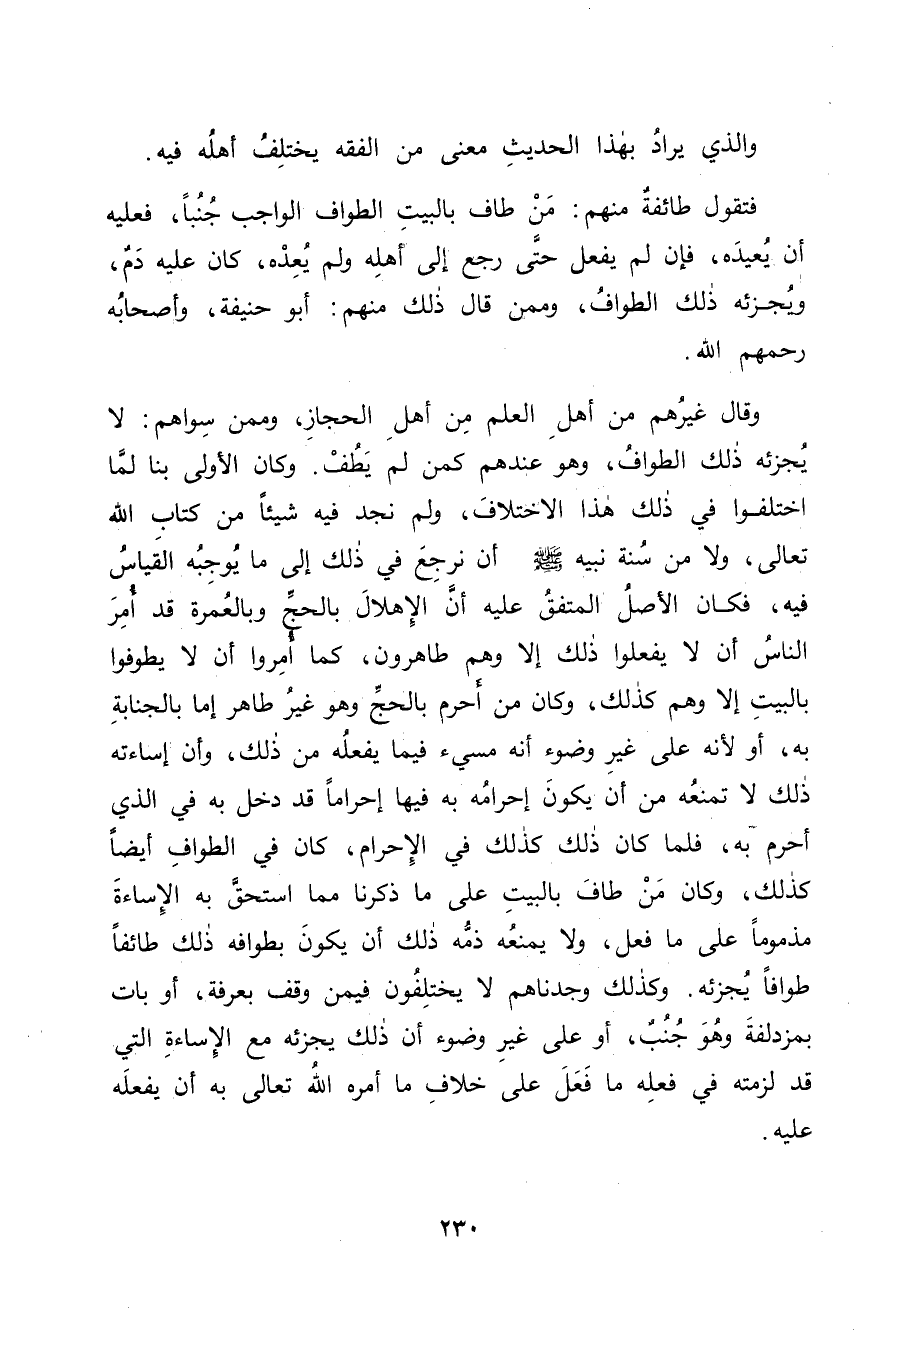 والذي يرادُ بهٰذا الحديثِ معنى من الفقه يختلِفُ أهلُه فيه.
فتقول طائفةٌ منهم: مَنْ طاف بالبيتِ الطواف الواجب جُنُباً، فعليه
أن يُعيدَه، فإن لم يفعل حتَّى رجع إلى أهلِه ولم يُعِدْه، كان عليه دَمٌ،
ويُجـزئه ذٰلك الطوافُ، وممن قال ذٰلك منهم: أبو حنيفة، وأصحابُه
رحمهم الله.
وقال غيرُهم من أهلِ العلم مِن أهلِ الحجازِ، وممن سِواهم: لا
يُجزئه ذٰلك الطوافُ، وهو عندهم كمن لم يَطُفْ. وكان الأولى بنا لمَّا
اختلفـوا في ذٰلك هٰذا الاختلافَ، ولم نجد فيه شيئاً من كتابِ الله
تعالى، ولا من سُنة نبيه ﷺ أن نرجِعَ في ذٰلك إلى ما يُوجِبُه القياسُ
فيه، فكـان الأصلُ المتفقُ عليه أنَّ الإِهلالَ بالحجِّ وبالعُمرة قد أُمِرَ
الناسُ أن لا يفعلوا ذٰلك إلا وهم طاهرون، كما أُمِروا أن لا يطوفوا
بالبيتِ إلا وهم كذٰلك، وكان من أَحرم بالحجِّ وهو غيرُ طاهر إما بالجنابةِ
به، أو لأنه على غيرِ وضوء أنه مسيء فيما يفعلُه من ذٰلك، وأن إساءته
ذٰلك لا تمنعُه من أن يكونَ إحرامُه به فيها إحراماً قد دخل به في الذي
أحرم به، فلما كان ذٰلك كذٰلك في الإِحرام، كان في الطوافِ أيضاً
كذٰلك، وكان مَنْ طافَ بالبيتِ على ما ذكرنا مما استحقَّ به الإِساءةَ
مذموماً على ما فعل، ولا يمنعُه ذمُّه ذٰلك أن يكونَ بطوافه ذٰلك طائفاً
طوافاً يُجزئه. وكذٰلك وجدناهم لا يختلِفُون فيمن وقف بعرفة، أو بات
بمزدلفةَ وهُوَ جُنُبٌ، أو على غيرِ وضوء أن ذٰلك يجزئه مع الإِساءةِ التي
قد لزمته في فعلِه ما فَعَلَ على خلافِ ما أمره اللهُ تعالى به أن يفعلَه
عليه.
٢٣٠